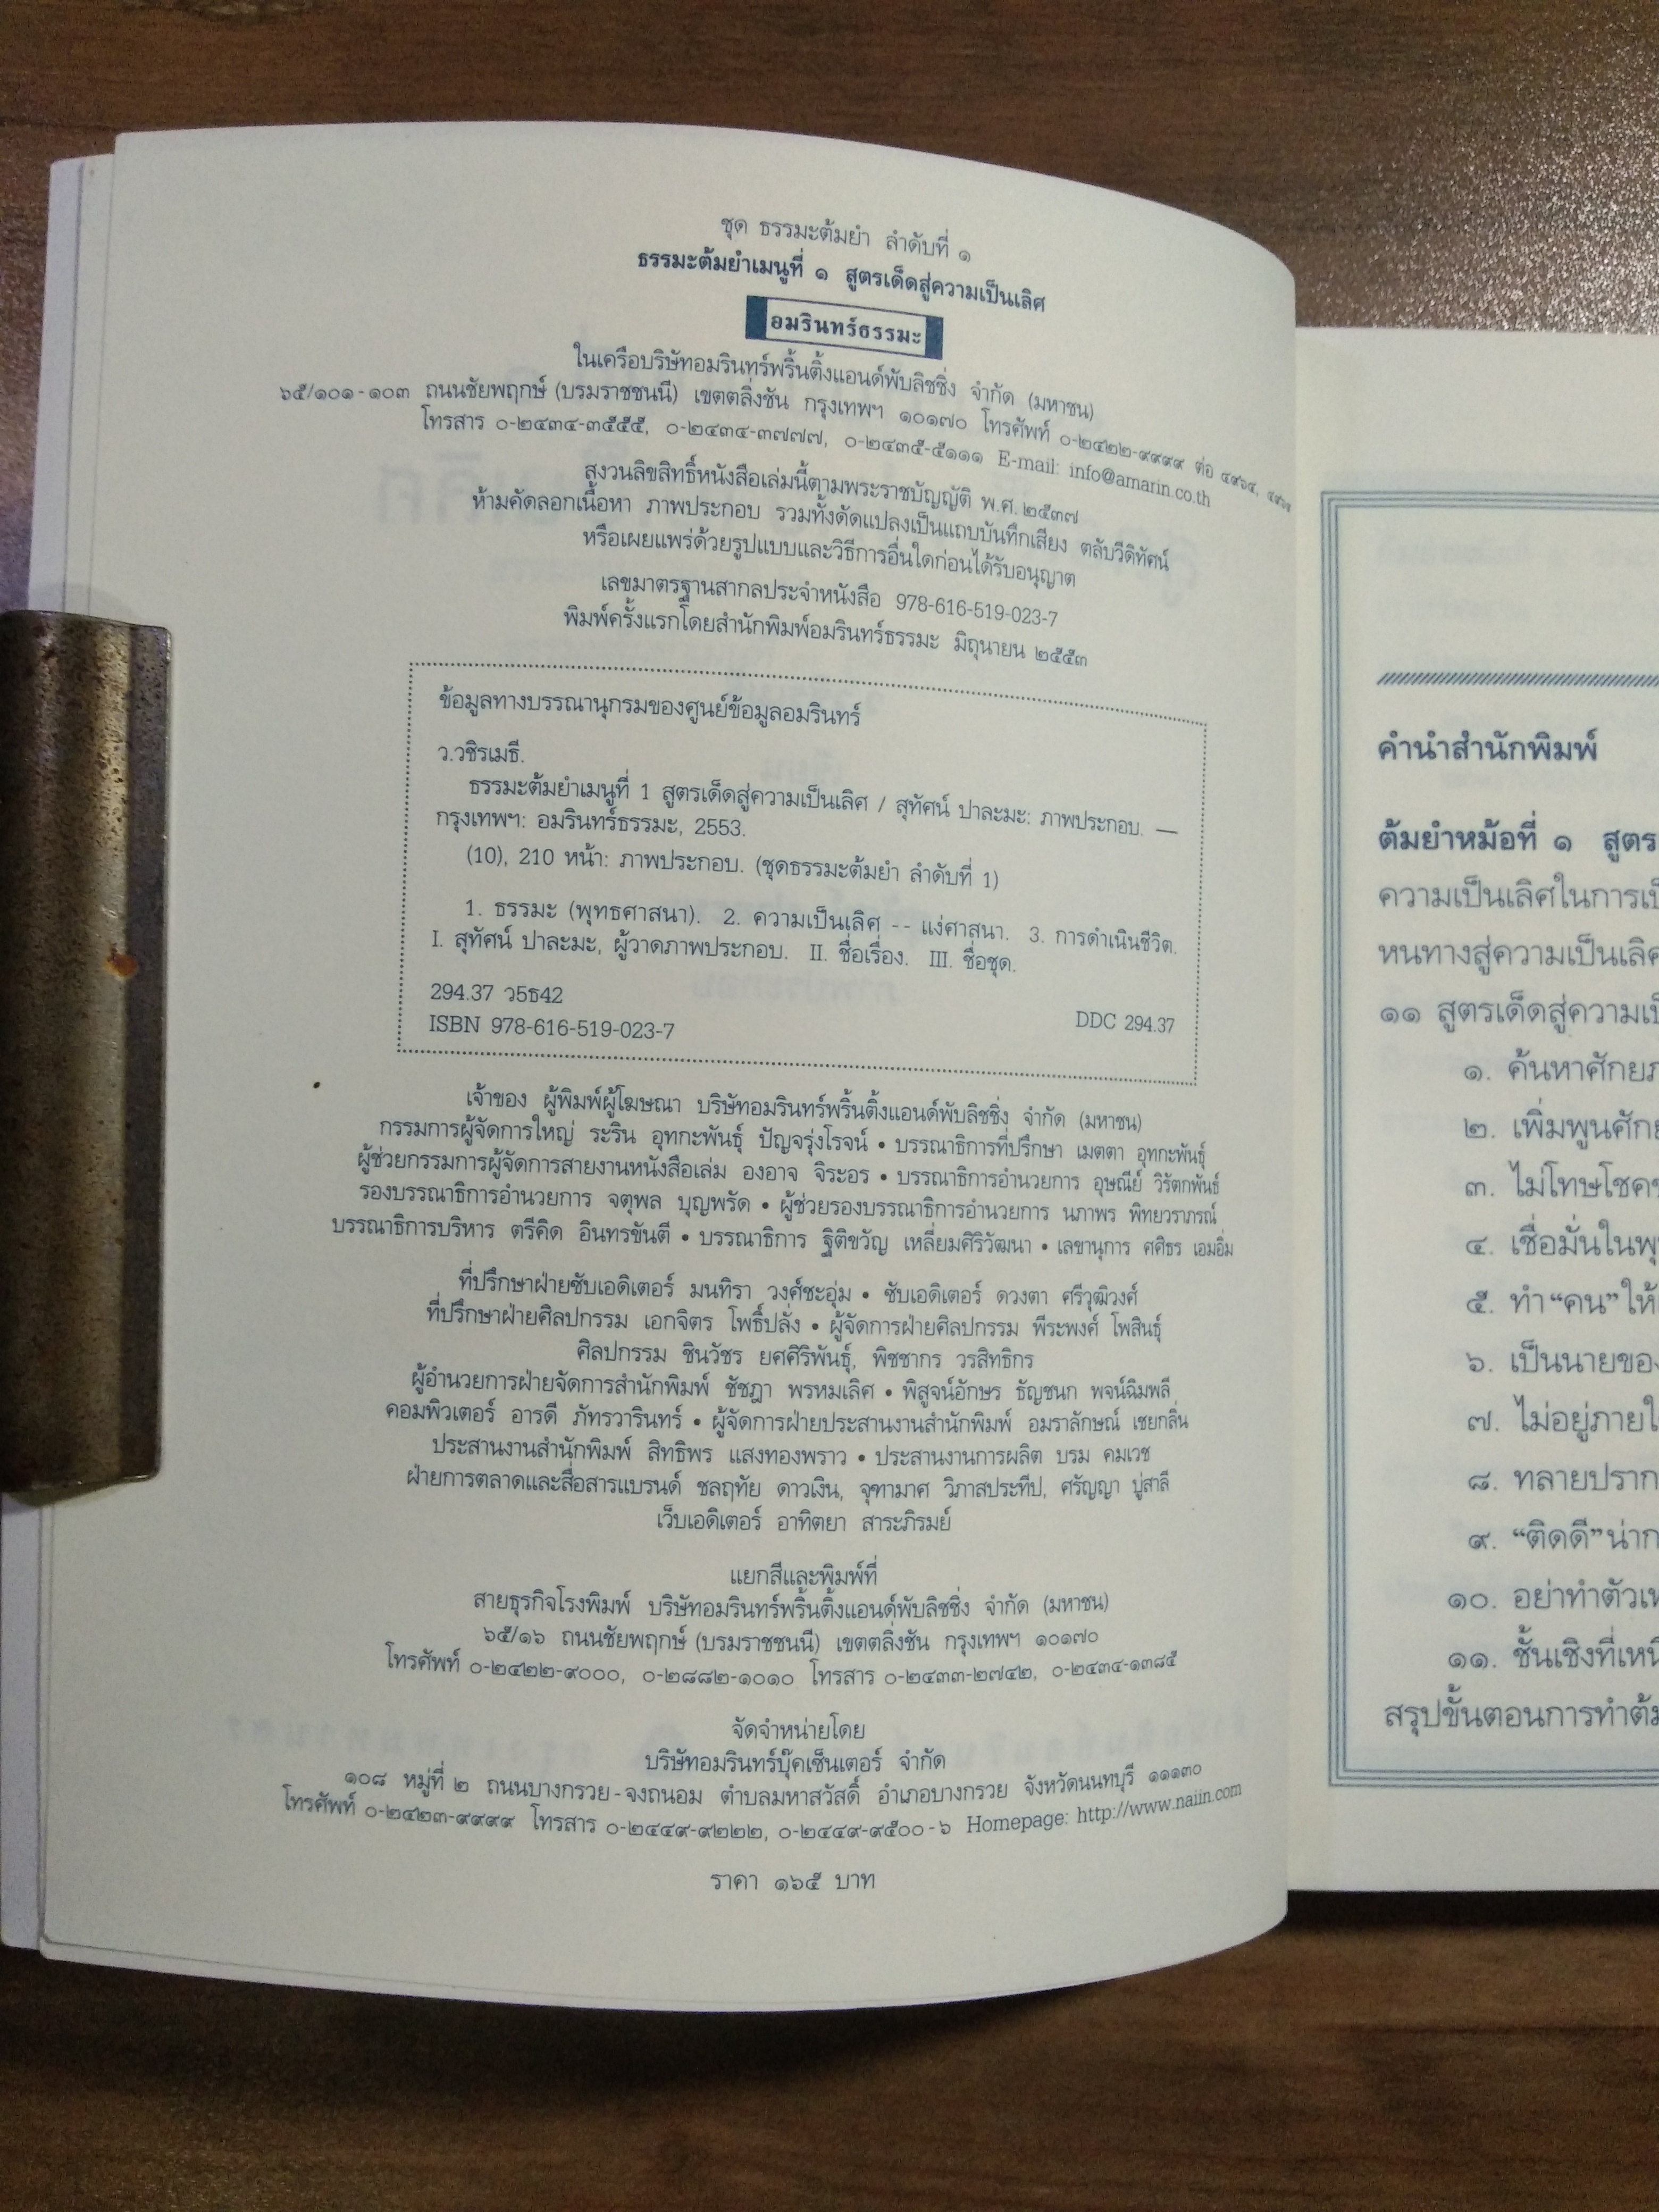 ชุด ธรรมะต้มยำ ลำดับที่ ๑
ธรรมะต้มยำเมนูที่ ๑ สูตรเด็ดสู่ความเป็นเลิศ
อมรินทร์ธรรมะ
ในเครือบริษัทอมรินทร์พริ้นติ้งแอนด์พับลิชชิ่ง จำกัด (มหาชน)
๖๕/๑๐๑-๑๐๓ ถนนชัยพฤกษ์ (บรมราชชนนี) เขตตลิ่งชัน กรุงเทพฯ ๑๐๑๗๐ โทรศัพท์ ๐-๒๔๒๒-๙๙๙๙ ต่อ ๔๙๖๔,
โทรสาร ๐-๒๔๓๔-๓๕๕๕, ๐-๒๔๓๔-๓๗๗๗, ๐-๒๔๓๕-๕๑๑๑ E-mail: info@amarin.co.th
สงวนลิขสิทธิ์หนังสือเล่มนี้ตามพระราชบัญญัติ พ.ศ. ๒๕๓๗
ห้ามคัดลอกเนื้อหา ภาพประกอบ รวมทั้งดัดแปลงเป็นแถบบันทึกเสียง ตลับวีดิทัศน์
หรือเผยแพร่ด้วยรูปแบบและวิธีการอื่นใดก่อนได้รับอนุญาต
เลขมาตรฐานสากลประจำหนังสือ 978-616-519-023-7
พิมพ์ครั้งแรกโดยสำนักพิมพ์อมรินทร์ธรรมะ มิถุนายน ๒๕๕๓
ข้อมูลทางบรรณานุกรมของศูนย์ข้อมูลอมรินทร์
ว.วชิรเมธี.
ธรรมะต้มยำเมนูที่ 1 สูตรเด็ดสู่ความเป็นเลิศ / สุทัศน์ ปาละมะ: ภาพประกอบ. —
กรุงเทพฯ: อมรินทร์ธรรมะ, 2553.
(10), 210 หน้า: ภาพประกอบ. (ชุดธรรมะต้มยำ ลำดับที่ 1)
1. ธรรมะ (พุทธศาสนา). 2. ความเป็นเลิศ -- แง่ศาสนา. 3. การดำเนินชีวิต.
I. สุทัศน์ ปาละมะ, ผู้วาดภาพประกอบ. II. ชื่อเรื่อง. III. ชื่อชุด.
294.37 ว5ธ42
ISBN 978-616-519-023-7 DDC 294.37
เจ้าของ ผู้พิมพ์ผู้โฆษณา บริษัทอมรินทร์พริ้นติ้งแอนด์พับลิชชิ่ง จำกัด (มหาชน)
กรรมการผู้จัดการใหญ่ ระริน อุทกะพันธุ์ ปัญจรุ่งโรจน์ • บรรณาธิการที่ปรึกษา เมตตา อุทกะพันธุ์
ผู้ช่วยกรรมการผู้จัดการสายงานหนังสือเล่ม องอาจ จิระอร • บรรณาธิการอำนวยการ อุษณีย์ วิรัตกพันธ์
รองบรรณาธิการอำนวยการ จตุพล บุญพรัด • ผู้ช่วยรองบรรณาธิการอำนวยการ นภาพร พิทยวราภรณ์
บรรณาธิการบริหาร ตรีคิด อินทรขันตี • บรรณาธิการ ฐิติขวัญ เหลี่ยมศิริวัฒนา • เลขานุการ ศศิธร เอมอิ่ม
ที่ปรึกษาฝ่ายซับเอดิเตอร์ มนทิรา วงศ์ชะอุ่ม • ซับเอดิเตอร์ ดวงตา ศรีวุฒิวงศ์
ที่ปรึกษาฝ่ายศิลปกรรม เอกจิตร โพธิ์ปลั่ง • ผู้จัดการฝ่ายศิลปกรรม พีระพงศ์ โพสินธุ์
ศิลปกรรม ชินวัชร ยศศิริพันธุ์, พิชชากร วรสิทธิกร
ผู้อำนวยการฝ่ายจัดการสำนักพิมพ์ ชัชฎา พรหมเลิศ • พิสูจน์อักษร ธัญชนก พจน์ฉิมพลี
คอมพิวเตอร์ อารดี ภัทรวารินทร์ • ผู้จัดการฝ่ายประสานงานสำนักพิมพ์ อมราลักษณ์ เชยกลิ่น
ประสานงานสำนักพิมพ์ สิทธิพร แสงทองพราว • ประสานงานการผลิต บรม คมเวช
ฝ่ายการตลาดและสื่อสารแบรนด์ ชลฤทัย ดาวเงิน, จุฑามาศ วิภาสประทีป, ศรัญญา ปู่สาลี
เว็บเอดิเตอร์ อาทิตยา สาระภิรมย์
แยกสีและพิมพ์ที่
สายธุรกิจโรงพิมพ์ บริษัทอมรินทร์พริ้นติ้งแอนด์พับลิชชิ่ง จำกัด (มหาชน)
๖๕/๑๖ ถนนชัยพฤกษ์ (บรมราชชนนี) เขตตลิ่งชัน กรุงเทพฯ ๑๐๑๗๐
โทรศัพท์ ๐-๒๔๒๒-๙๐๐๐, ๐-๒๘๘๒-๑๐๑๐ โทรสาร ๐-๒๔๓๓-๒๗๔๒, ๐-๒๔๓๔-๑๓๘๕
จัดจำหน่ายโดย
บริษัทอมรินทร์บุ๊คเซ็นเตอร์ จำกัด
๑๐๘ หมู่ที่ ๒ ถนนบางกรวย-จงถนอม ตำบลมหาสวัสดิ์ อำเภอบางกรวย จังหวัดนนทบุรี ๑๑๑๓๐
โทรศัพท์ ๐-๒๔๒๓-๙๙๙๙ โทรสาร ๐-๒๔๔๙-๙๒๒๒, ๐-๒๔๔๙-๙๕๐๐-๖ Homepage: http://www.naiin.com
ราคา ๑๖๕ บาท
คำนำสำนักพิมพ์
ต้มยำหม้อที่ ๑ สูตร
ความเป็นเลิศในการเป็
หนทางสู่ความเป็นเลิศ
๑๑ สูตรเด็ดสู่ความเป็
๑. ค้นหาศักยภ
๒. เพิ่มพูนศักย
๓. ไม่โทษโชคช
๔. เชื่อมั่นในพุ
๕. ทำ “คน” ให้
๖. เป็นนายของ
๗. ไม่อยู่ภายใ
๘. ทลายปราก
๙. “ติดดี” น่าก
๑๐. อย่าทำตัวเห
๑๑. ชั้นเชิงที่เหนื
สรุปขั้นตอนการทำต้ม